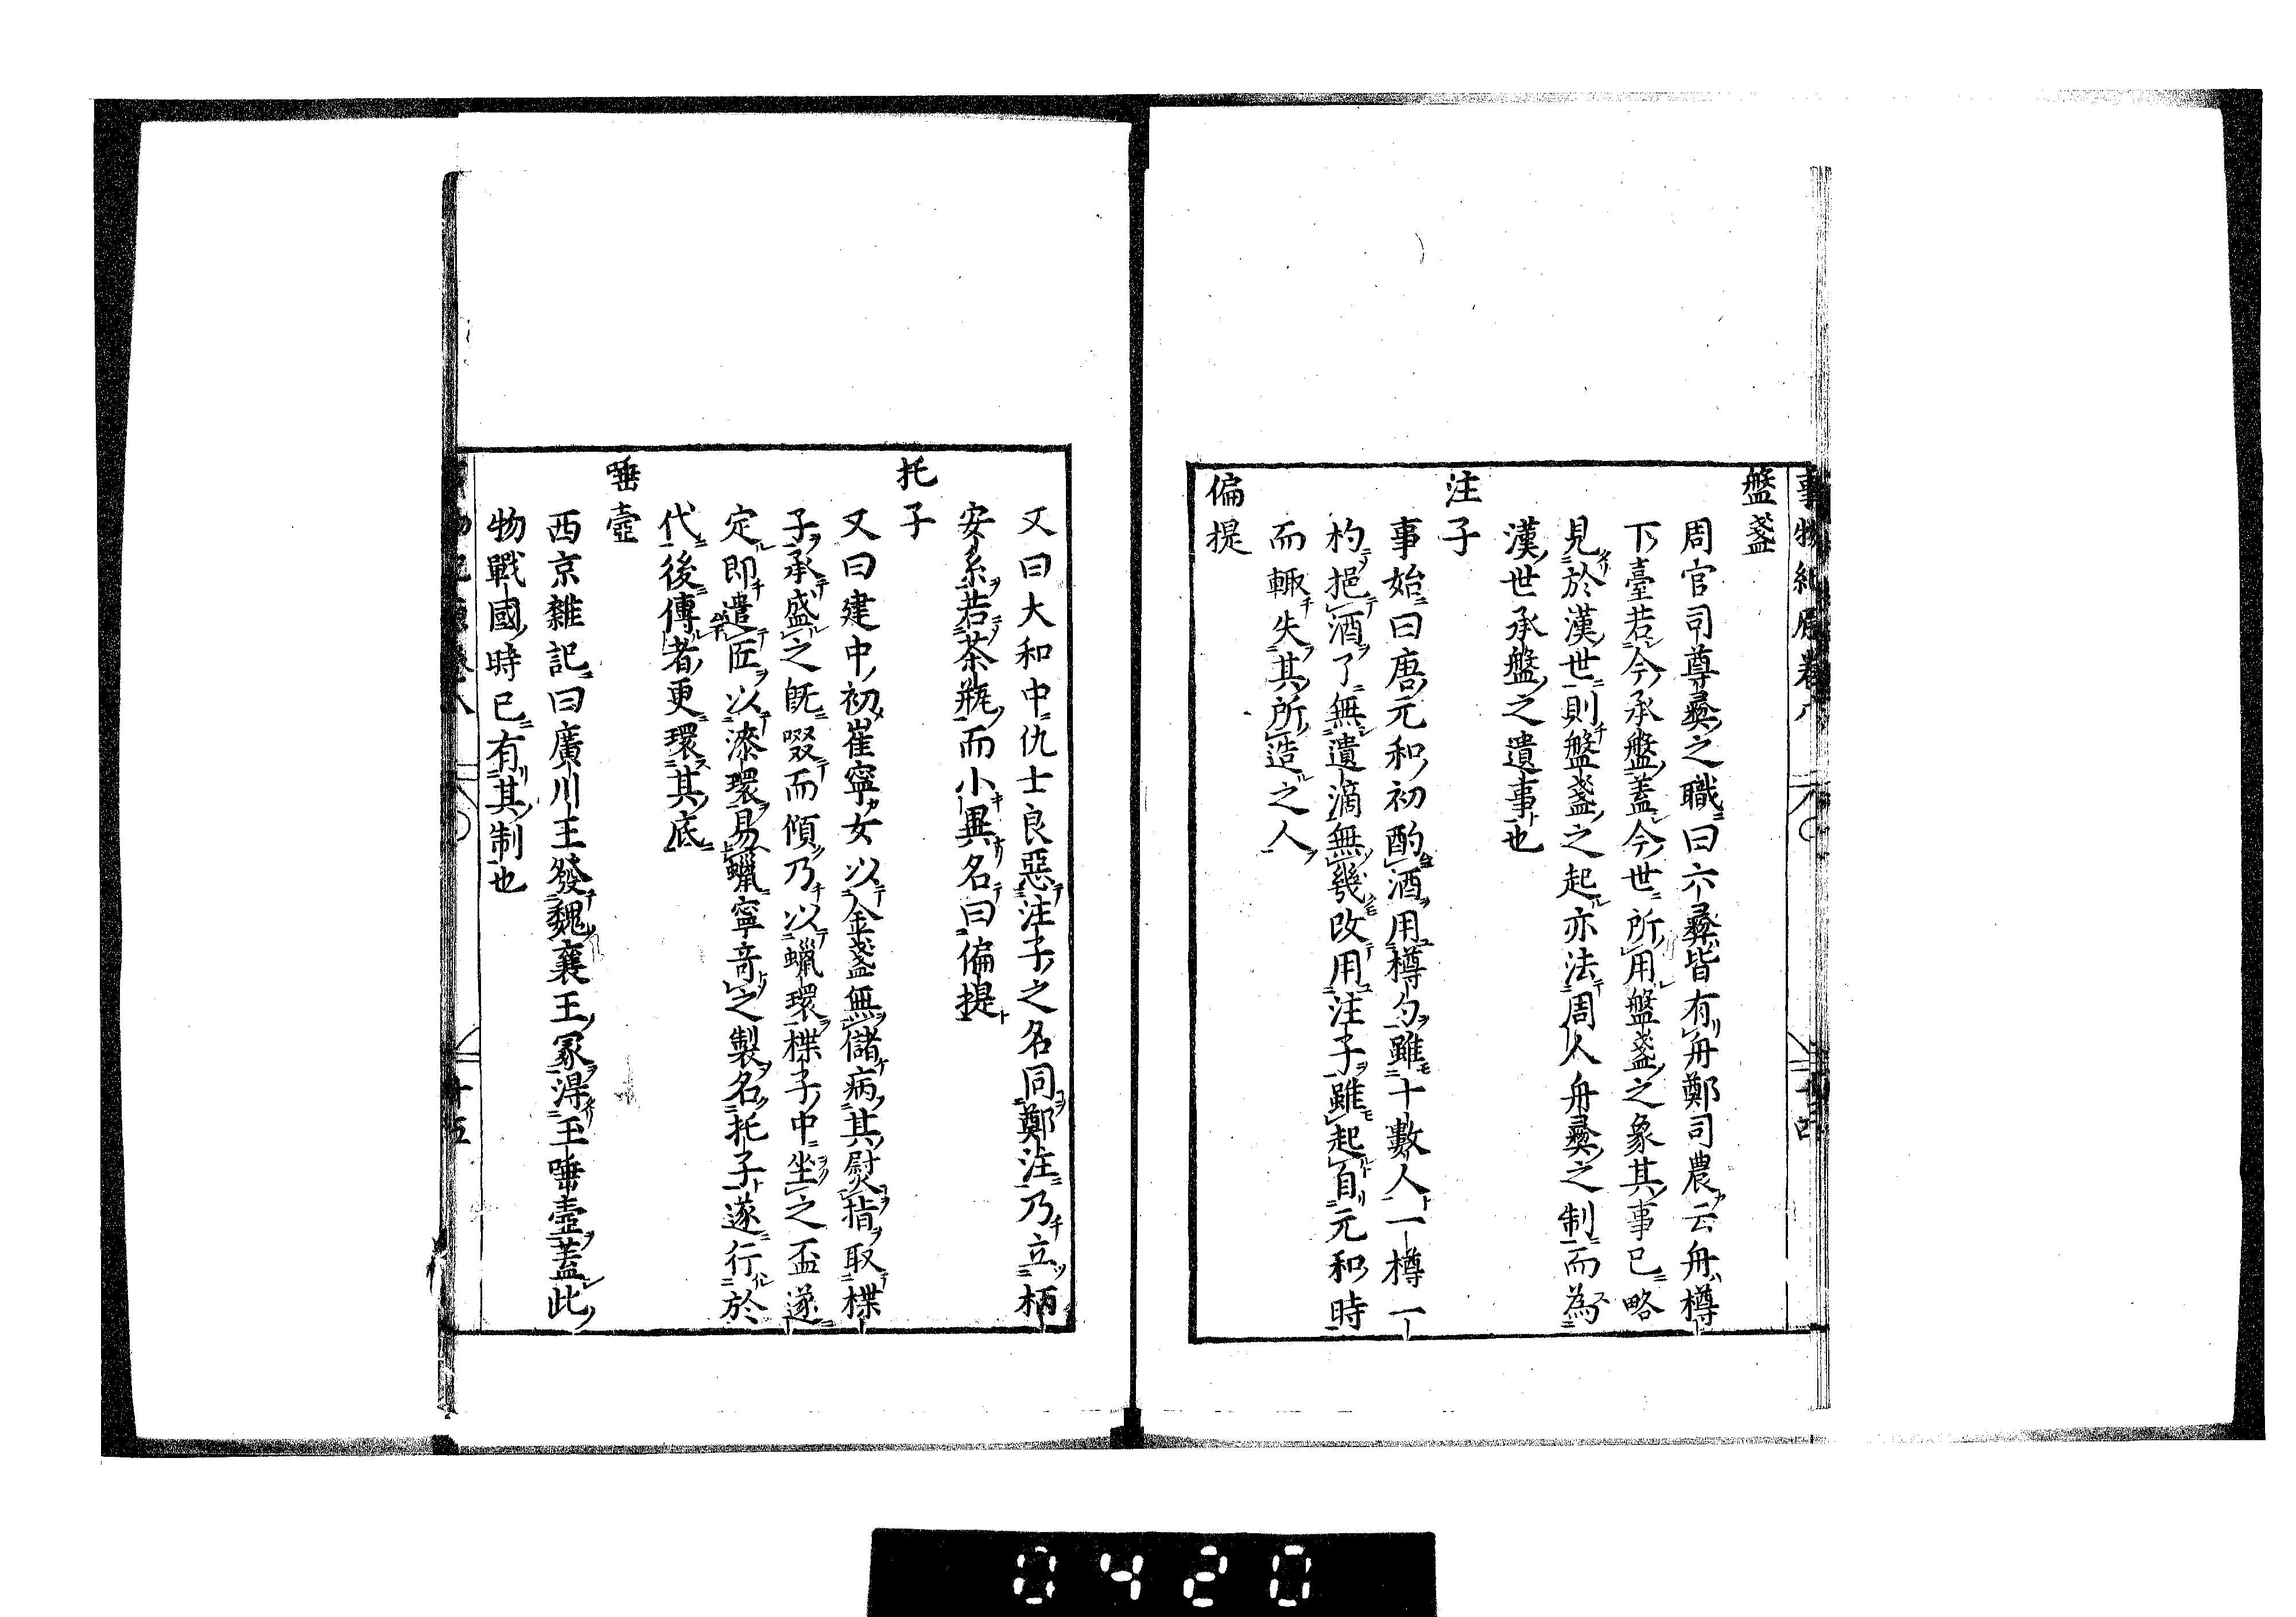 事物紀原卷八
盤盞
周官司尊彞之職曰六彞皆有舟鄭司農云舟樽
下臺若今承盤蓋今世所用盤盞之象其事已略
見於漢世則盤盞之起亦法周人舟彞之制而為
漢世承盤之遺事也
注子
事始曰唐元和初酌酒用樽勺雖十數人一樽一
杓挹酒了無遺滴無幾改用注子雖起自元和時
而輙失其所造之人
偏提
又曰大和中仇士良惡注子之名同鄭注乃立柄
安系若茶瓶而小異名曰偏提
托子
又曰建中初崔寧女以金盞無儲病其熨指取楪
子承盛之旣啜而傾乃以蠟環楪子中坐之盃遂
定即遣匠以漆環易蠟寧竒之製名托子遂行於
代後傳者更環其底
唾壺
西京雜記曰廣川王發魏襄王冢得玉唾壺蓋此
物戰國時已有其制也
十五
0420